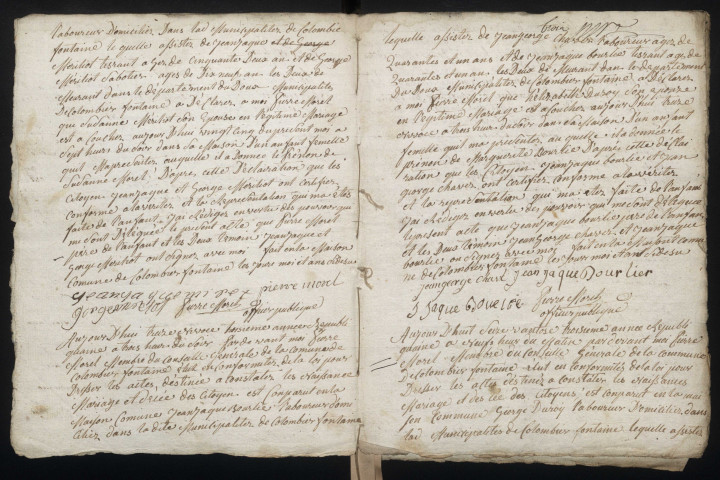 Laboureur Domicilier Dans ladi Municipalitez de Colombie
fontaine lequelle assistez de jeanjaque
Meriliot tissrant agez de Cinquante Deux an. et de George
Meriliot Sabotier ages de Dix neuf an les Deux de
Meurant dans le departement du Doux Municipalitez
de Colombier fontaine a Declarez a moi pierre Morel
que Susanne Meriliot son Epouse en legitime Mariage
est a Couchez aujour D'hui vingt cinq du present moi a
Sept heurs du Soir dans sa Maison D'un anfant femelle
quil Ma presenter auquelle il a Donnee le prenon de
Susanne Morel. D'apres, cette Declaration que les
Citoyen Jeanjaque et George Meriliot ont Certifiez
Conforme a la veritez et la Representation qui ma etez
faite de l'anfant. J'ai Redigez en vertu des pouvoirs qui
me sont Deleguez le present acte que Pierre Morel
peres de l'anfant et les Deux temoin jeanjaque et
George Meriliot ont signez avec moi fait en la Maison
Comune de Colombier fontaine les jours moi et an si desu
pierre morel
Pierre Morel
officier publique
Aujour D'hui traize vivose troisieme annee Republi
quaine a trois heurs du Soir par devant moi Pierre
Morel Membre du Conselle Generale de la Comune de
Colombier fontaine Elut en Conformitez de la loi pour
Dresser les actes, destinee a Constater les Naissance
Mariage et decee des Citoyen est Comparut en la
Maison Comune jeanjaque Bourlie Laboureur domi
cilier dans la dite Municipalitez de Colombier fontaine
lequelle assistez de jeangeorge Charles Laboureur agez de
Quarantes et un ans et de jeanjaque bourlier tissrant agez de
Quarantes et un am. les Deux de Meurant dan le departement
du Doux Municipalitez de Colombier fontaine a Declarez
a moi Pierre Morel que Elizabette Duroy son epouze
en legitime Mariage est a Couchez aujour D'hui traize
vivose a trois heur du Soir dan sa Maison D'un anfant
femelle quil ma presenter, auquelle il a Donnee le
prenon de Marguerite Bourlie D'apres cette Decla
ration que les Citoyen jeanjaque bourlie et jean
george Charles, ont Certifiez Conforme a la veritez
et la representation qui ma etez faite de l'anfant
J'ai Redigez en vertu des pouvoirs qui me sont Deleguez
le present acte que jeanjaque bourlie pere de l'anfan
et les Deux temoin jeangeorge Charles et jeanjaque
bourlie on signez avec moi fait en la Maison Commu
ne de Colombier fontaine les jours moi et an Sidesu
jeangeorge Charl jeanjaque Bourlier
J Jaque Bourlie Pierre Morel
officier publique
Aujour D'hui Seize vantose troisieme annee Republi
quaine a neufs heur du Matin par devant moi Pierre
Morel Membre du Conselle Generale de la Commune
de Colombier fontaine elut en Conformitez de la loi pour
Dresser les acte destinez a Constater les Naissances
Mariage et decee des Citoyens est Comparut en la mai
son Commune George Duroy laboureur Domicilier dans
ladi Municipalitez de Colombier fontaine lequelle assistez